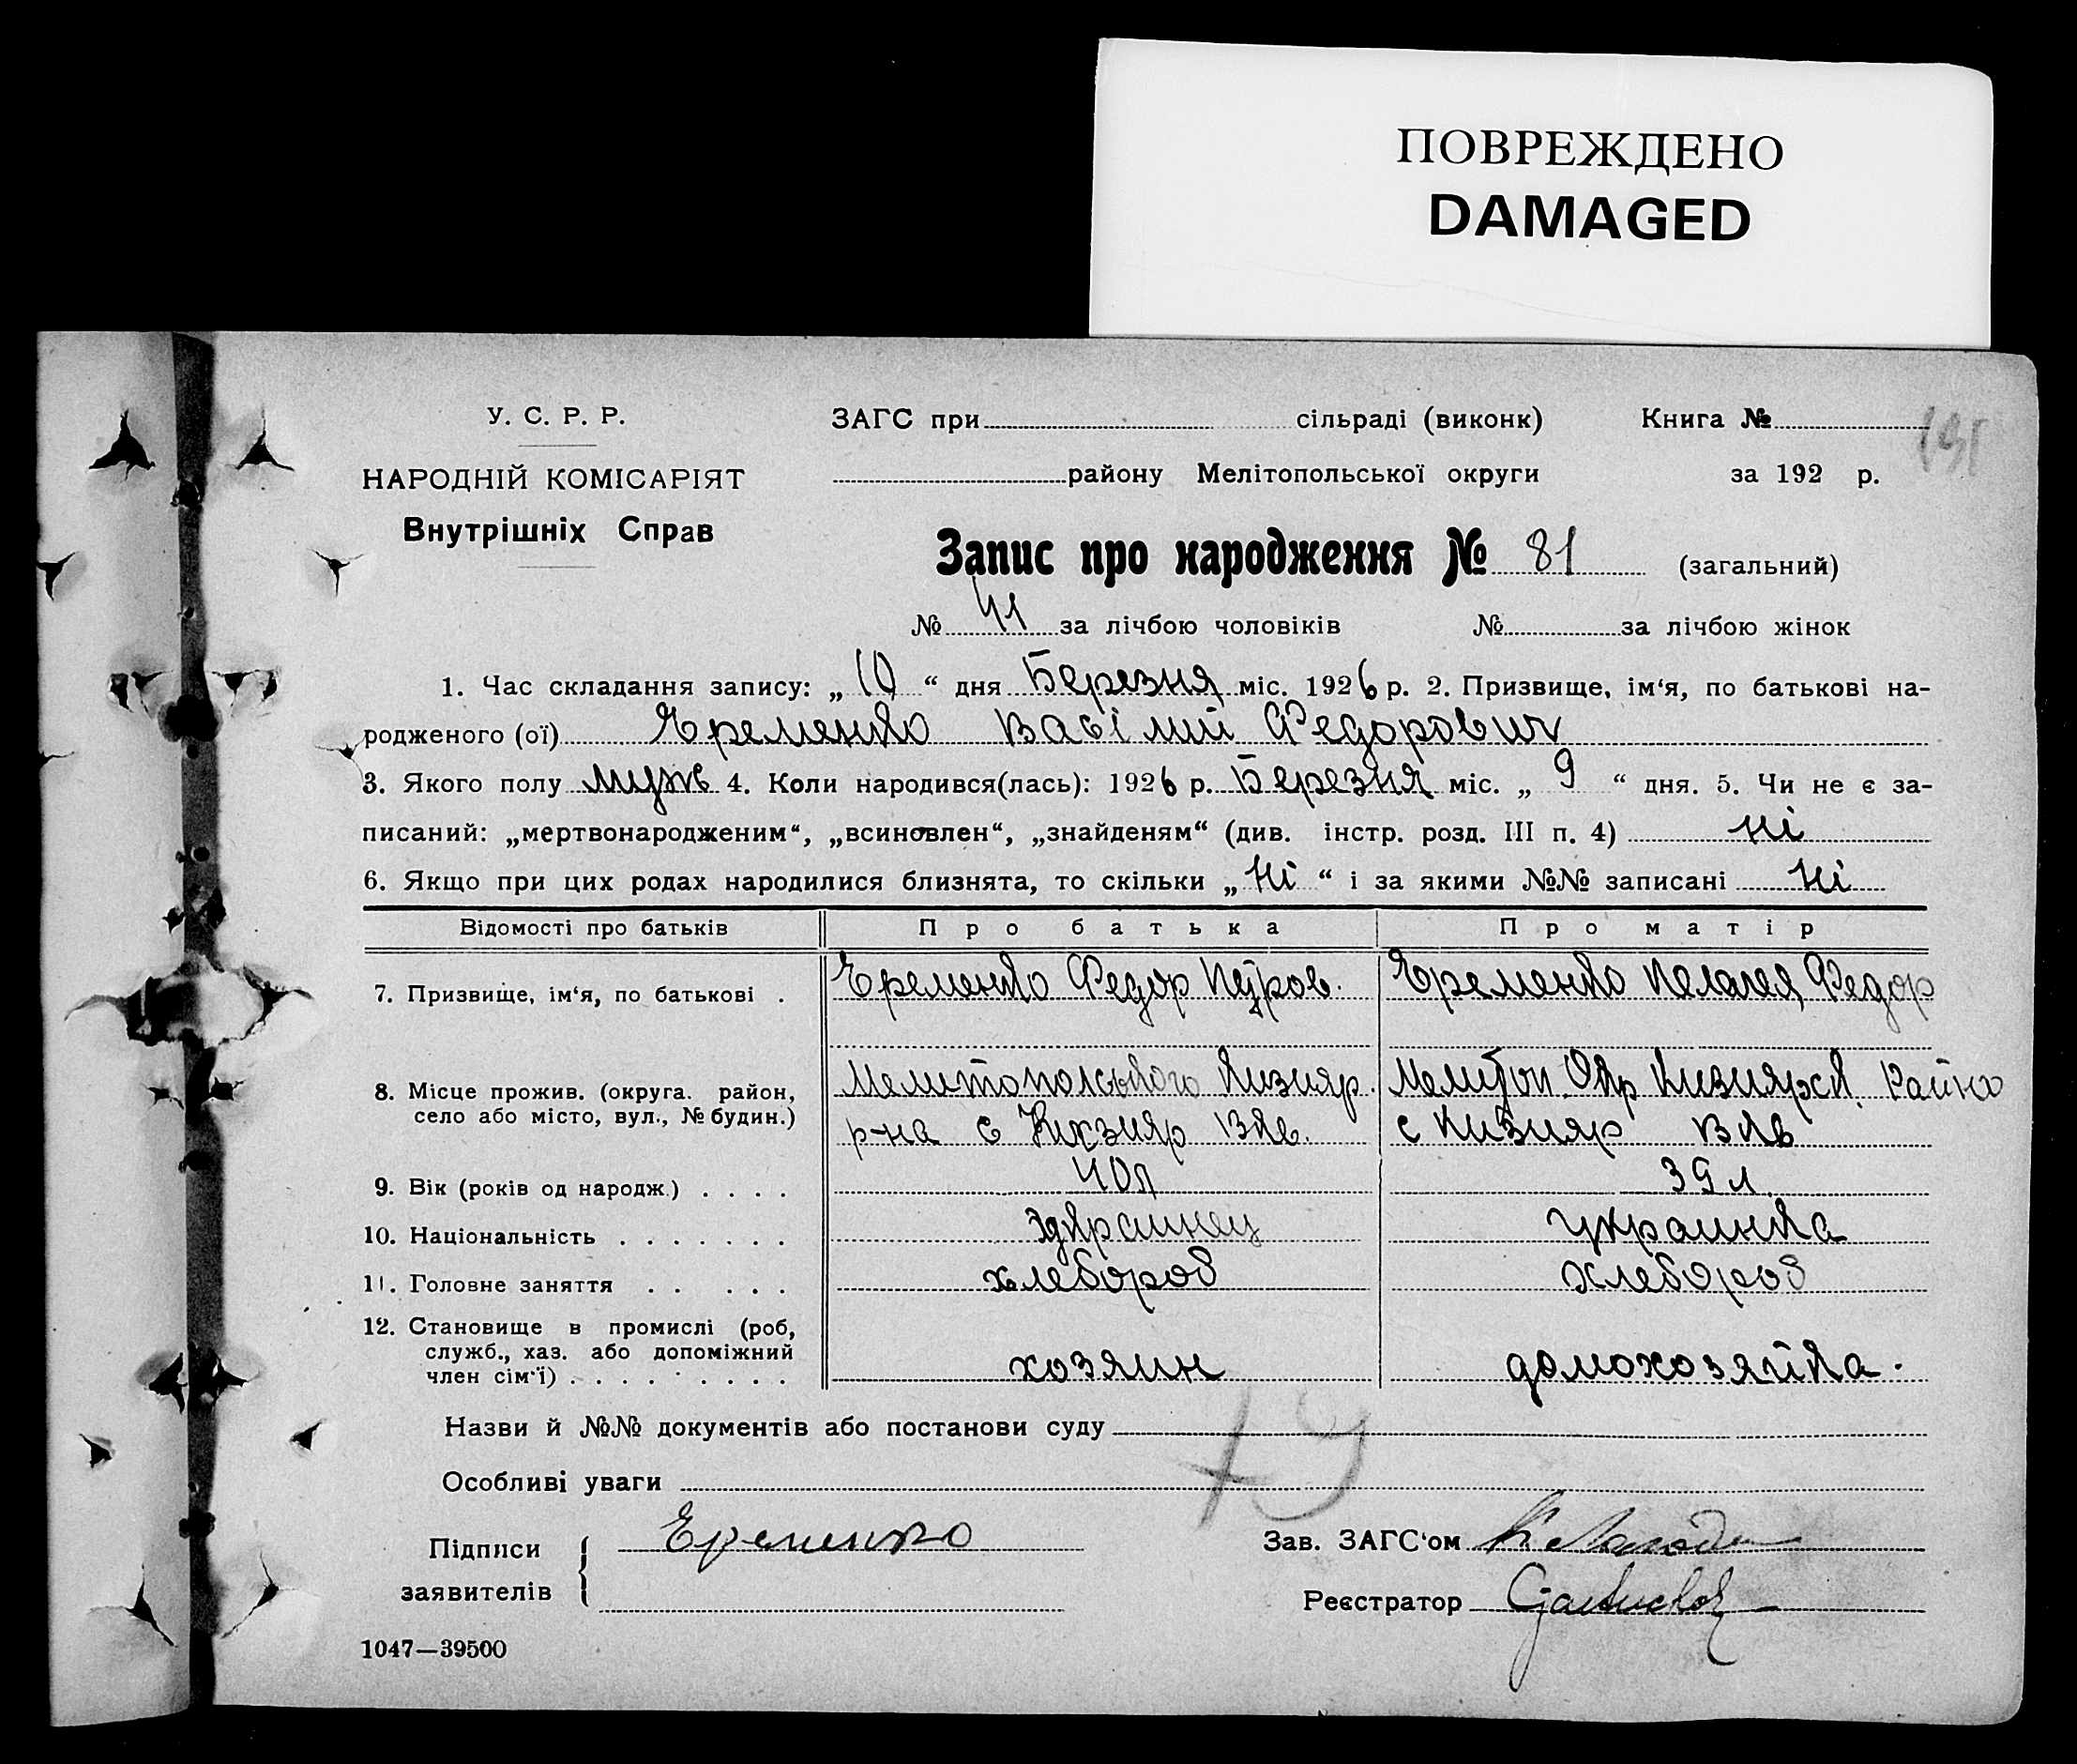 ПОВРЕЖДЕНО
DAMAGED
У. С. Р. Р.
НАРОДНІЙ КОМІСАРІЯТ
Внутрішніх Справ
ЗАГС при сільраді (виконк) Книга №
району Мелітопольської округи за 192 р.
191
Запис про народження № 81 (загальний)
№ 41 за лічбою чоловіків № за лічбою жінок
1. Час складання запису: „ 10 “ дня Березня міс. 1926 р. 2. Призвище, ім‘я, по батькові на-
родженого (ої) Еременко Василий Федорович
3. Якого полу муж 4. Коли народився(лась): 1926 р. Березня міс. „ 9 “ дня. 5. Чи не є за-
писаний: „мертвонародженим“, „всиновлен“, „знайденям“ (див. інстр. розд. III п. 4) ні
6. Якщо при цих родах народилися близнята, то скільки „ Ні “ і за якими №№ записані Ні
Відомості про батьків Про батька Про матір
7. Призвище, ім‘я, по батькові . Еременко Федор Петров. Еременко Пелагея Федор
8. Місце прожив. (округа. район,
село або місто, вул., № будин.)
Мелитопольского Кизияр.
р-на с Кизияр Вл.
Мелитоп. Окр Кизиярск. Району
с Кизияр Вл
9. Вік (років од народж.) . . . . 40 л 39 л.
10. Національність . . . . . . . украинец украинка
11. Головне заняття . . . . . хлебороб хлебороб
12. Становище в промислі (роб,
служб., хаз. або допоміжний
член сім‘ї) . . . . . . . . . хозяин домохозяйка.
Назви й №№ документів або постанови суду
79
Особливі уваги
Підписи
заявителів
Еременко
Зав. ЗАГС‘ом
Реєстратор
1047—39500